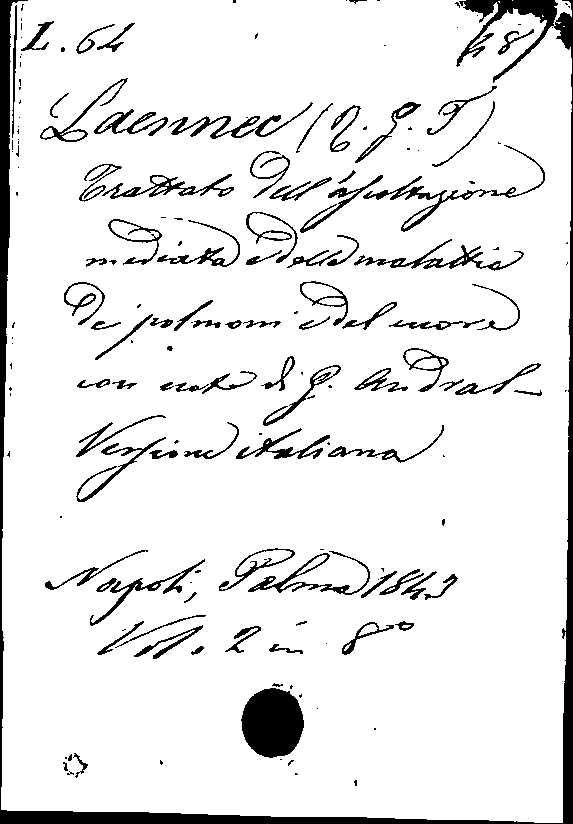 L. 64
Laennec (R. G. T)
Trattato dell'ascoltazione
mediata e delle malattie
de' polmoni e del cuore
con note di G. Andral –
Versione italiana
Napoli, Palma 1843
Vol. 2 in 8º